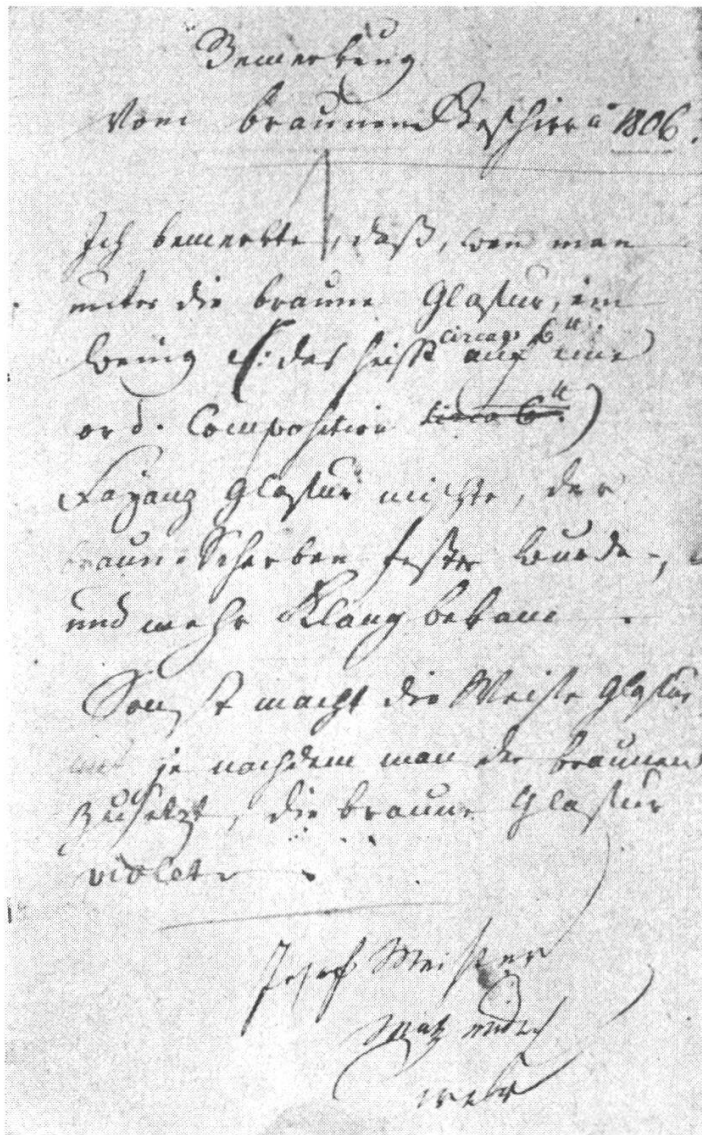 Bemerkung
Vom braunen Geschirr aº 1806.
Ich bemerkte, daß, wen man
unter die braune Glasur, ein
wenig /: das heißt circa 6 ℔. auf eine
ord. Composition circa 6 ℔.)
Fayanz Glasur mischte, der
braune Scherben fester wurde,
und mehr Klang bekam.
Sonst macht die Weiße Glasur
und je nachdem man der braunen
zusetzt, die braune Glasur
violet.
Josef Meister
Matzendorf